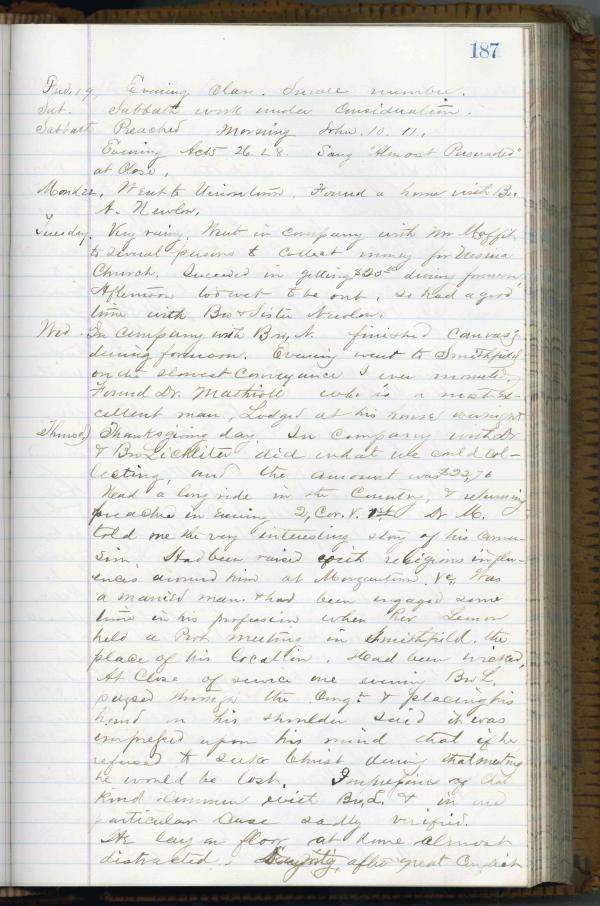 187
Frid. 19, Evening Class. Small number.
Sat. Sabbath work under consideration.
Sabbath Preached Morning John. 10. 11.
Evening Acts 26. 28. Sang "Almost Persuaded"
at Close.
Mond 22. Went to Uniontown. Found a home with Bro.
N. Newlon.
Tuesday. Very rainy. Went in company with Mr Moffit
to several persons to collect money for
Church. Succeeded in getting $20 during forenoon,
Afternoon too wet to be out, so had a good
time with Bro & Sister Newlon.
Wed. In company with Bro. N. finished canvas'g
during forenoon. Evening went to Smithfield
on the slowest conveyance I ever mounted.
Found Dr. Mathiott who is a most ex-
cellent man, Lodged at his house overnight
Thursd) Thanksgiving day. In company with Dr
& Bro did what we could col-
lecting, and the amount was $22,76
Had a long ride in the Country, & returning
preached in Evening 2, Cor. V. Dr M.
told me the very interesting story of his conver-
sion. Had been raised with religious influ-
ences around him at Morgantown Va, Was
a married man. & had been engaged some
time in his profession when Rev Lemon
held a Prot meeting in Smithfield. the
place of his location. Had been wicked,
At Close of service one evening Bro L
passed through the Cong. & placing his
hand on his shoulder said it was
impressed upon his mind that if he
refused to seek Christ during that meeting
he would be lost. Impressions of that
kind common with Bro. L. & in one
particular Case sadly verified.
He lay on floor at home almost
distracted. after great Conflict